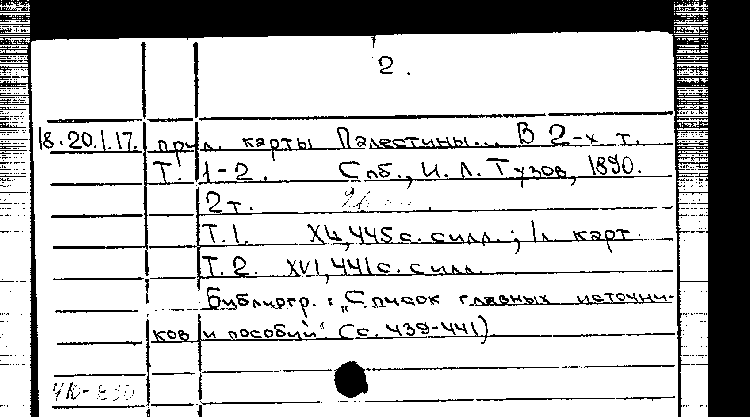 2.
18.20.1.17. прил. карты Палестины... В 2-х т.
Т. 1-2. Спб., И. Л. Тузов, 1890.
2 т.
Т. 1. XII, 445 с. с илл.; 1 л. карт.
Т. 2. XVI, 441 с. с илл.
Библиогр.: „Список главных источни-
ков и пособий" (с. 439-441)